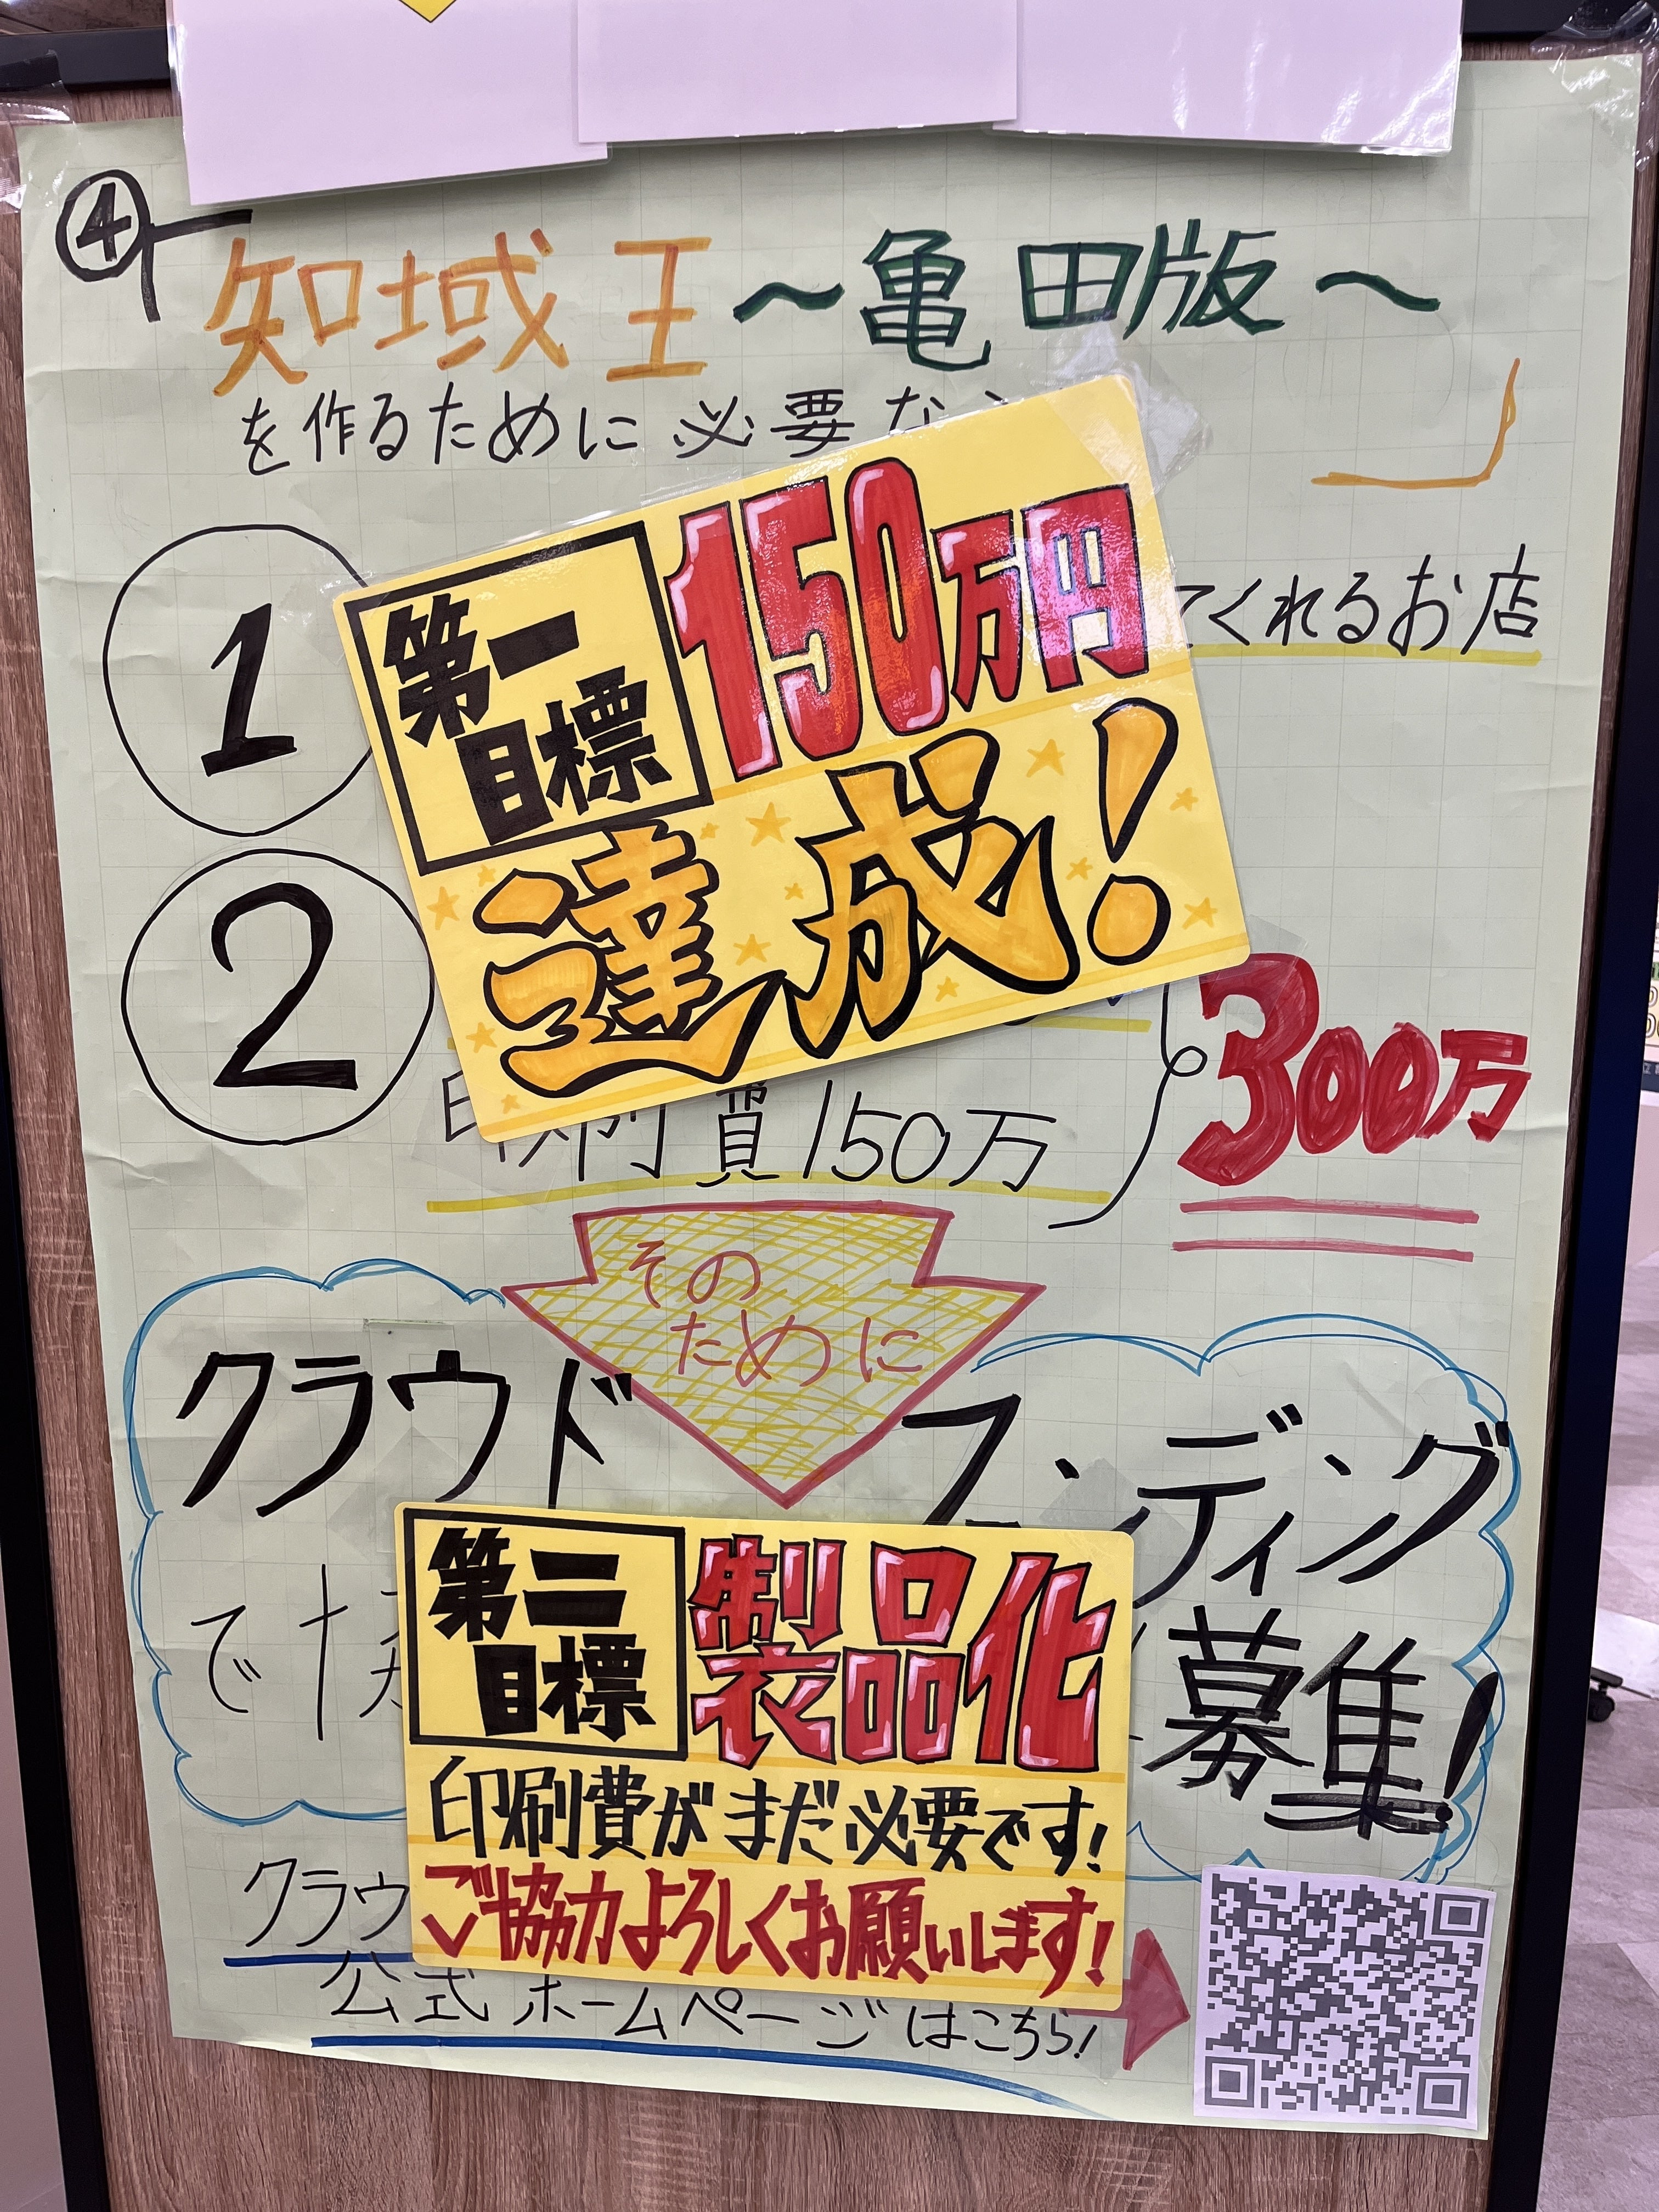 ④
知域王〜亀田版〜
を作るために必要な
1
てくれるお店
第一
目標
150万円
達成!
2
印刷費150万
300万
その
ために
クラウドファンディング
で
募集!
第二
目標
製品化
印刷費がまだ必要です!
ご協力よろしくお願いします!
クラウ
公式ホームページはこちら!